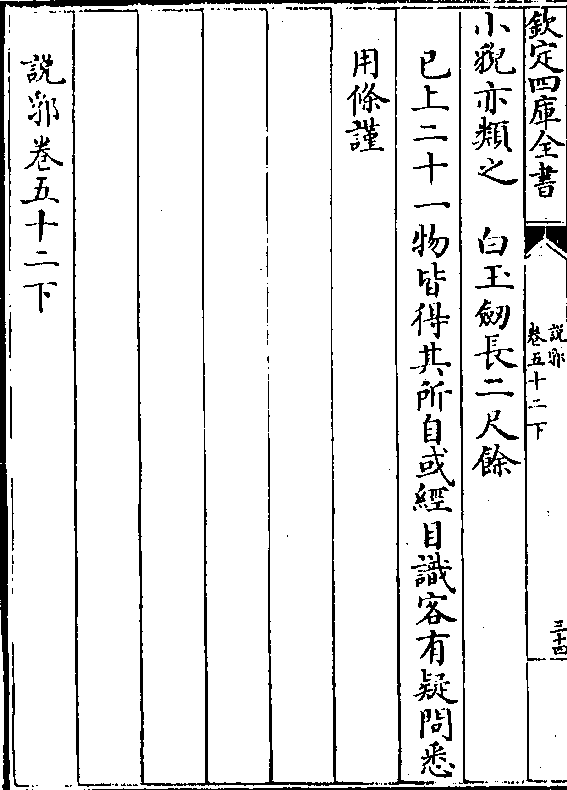 欽定四庫全書
說郛
卷五十二下
三十四
小貌亦類之　白玉劒長二尺餘
已上二十一物皆得其所自或經目識客有疑問悉
用條謹
說郛卷五十二下